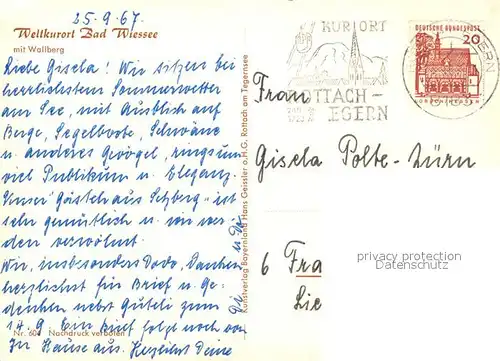 25.9.67.
Weltkurort Bad Wiessee
mit Wallberg
Liebe Gisela! Wir sitzen bei
herrlichstem Sommerwetter
am See, mit Ausblick auf
Berge, Segelboote, Schwäne
u anderes Gevögel, ringsum
viel Publikum u. Eleganz.
Unser Gästeh aus Setzberg ist
sehr gemütlich u. wir wer
den verwöhnt.
Wir, insbesondere Dodo, Danken
herzlichst für Brief u. Ge
denken nebst Guteli zum
14.9. Ein Brief folgt noch von
Zu Hause aus. Herzlichst Deine
Nr. 604 Nachdruck verboten
Kunstverlag Bayernland Hans Geissler o.H.G. Rottach am Tegernsee
KURORT
ROTTACH-
EGERN
DEUTSCHE BUNDESPOST
20
LORSCH/HESSEN
Frau
Gisela Polte-Zürn
6 Fra
Lie
privacy watermark
Datenschutz-Wasserzeichen